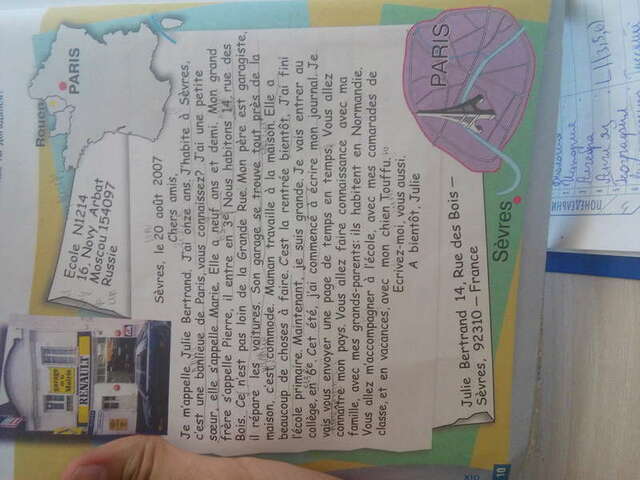 garage
de la
Mairie
RENAULT
Rouen
PARIS
Ecole N1214
16, Novy Arbat
Moscou 154097
Russie
Sèvres, le 20 août 2007
Chers amis,
Je m'appelle Julie Bertrand. J'ai onze ans. J'habite à Sèvres,
c'est une banlieue de Paris, vous connaissez? J'ai une petite
sœur, elle s'appelle Marie. Elle a neuf ans et demi. Mon grand
frère s'appelle Pierre, il entre en 3e. Nous habitons 14, rue des
Bois. Ce n'est pas loin de la Grande Rue. Mon père est garagiste,
il répare les voitures. Son garage se trouve tout près de la
maison, c'est commode. Maman travaille à la maison. Elle a
beaucoup de choses à faire. C'est la rentrée bientôt. J'ai fini
l'école primaire. Maintenant, je suis grande. Je vais entrer au
collège, en 6e. Cet été, j'ai commencé à écrire mon journal. Je
vais vous envoyer une page de temps en temps. Vous allez
connaître mon pays. Vous allez faire connaissance avec ma
famille, avec mes grands-parents: ils habitent en Normandie.
Vous allez m'accompagner à l'école, avec mes camarades de
classe, et en vacances, avec mon chien Touffu.
Ecrivez-moi, vous aussi.
A bientôt, Julie
PARIS
Julie Bertrand 14, Rue des Bois –
Sèvres, 92310 – France
Sèvres
10
ПОНЕДЕЛЬНИК
История
Алгебра
Англ яз
География